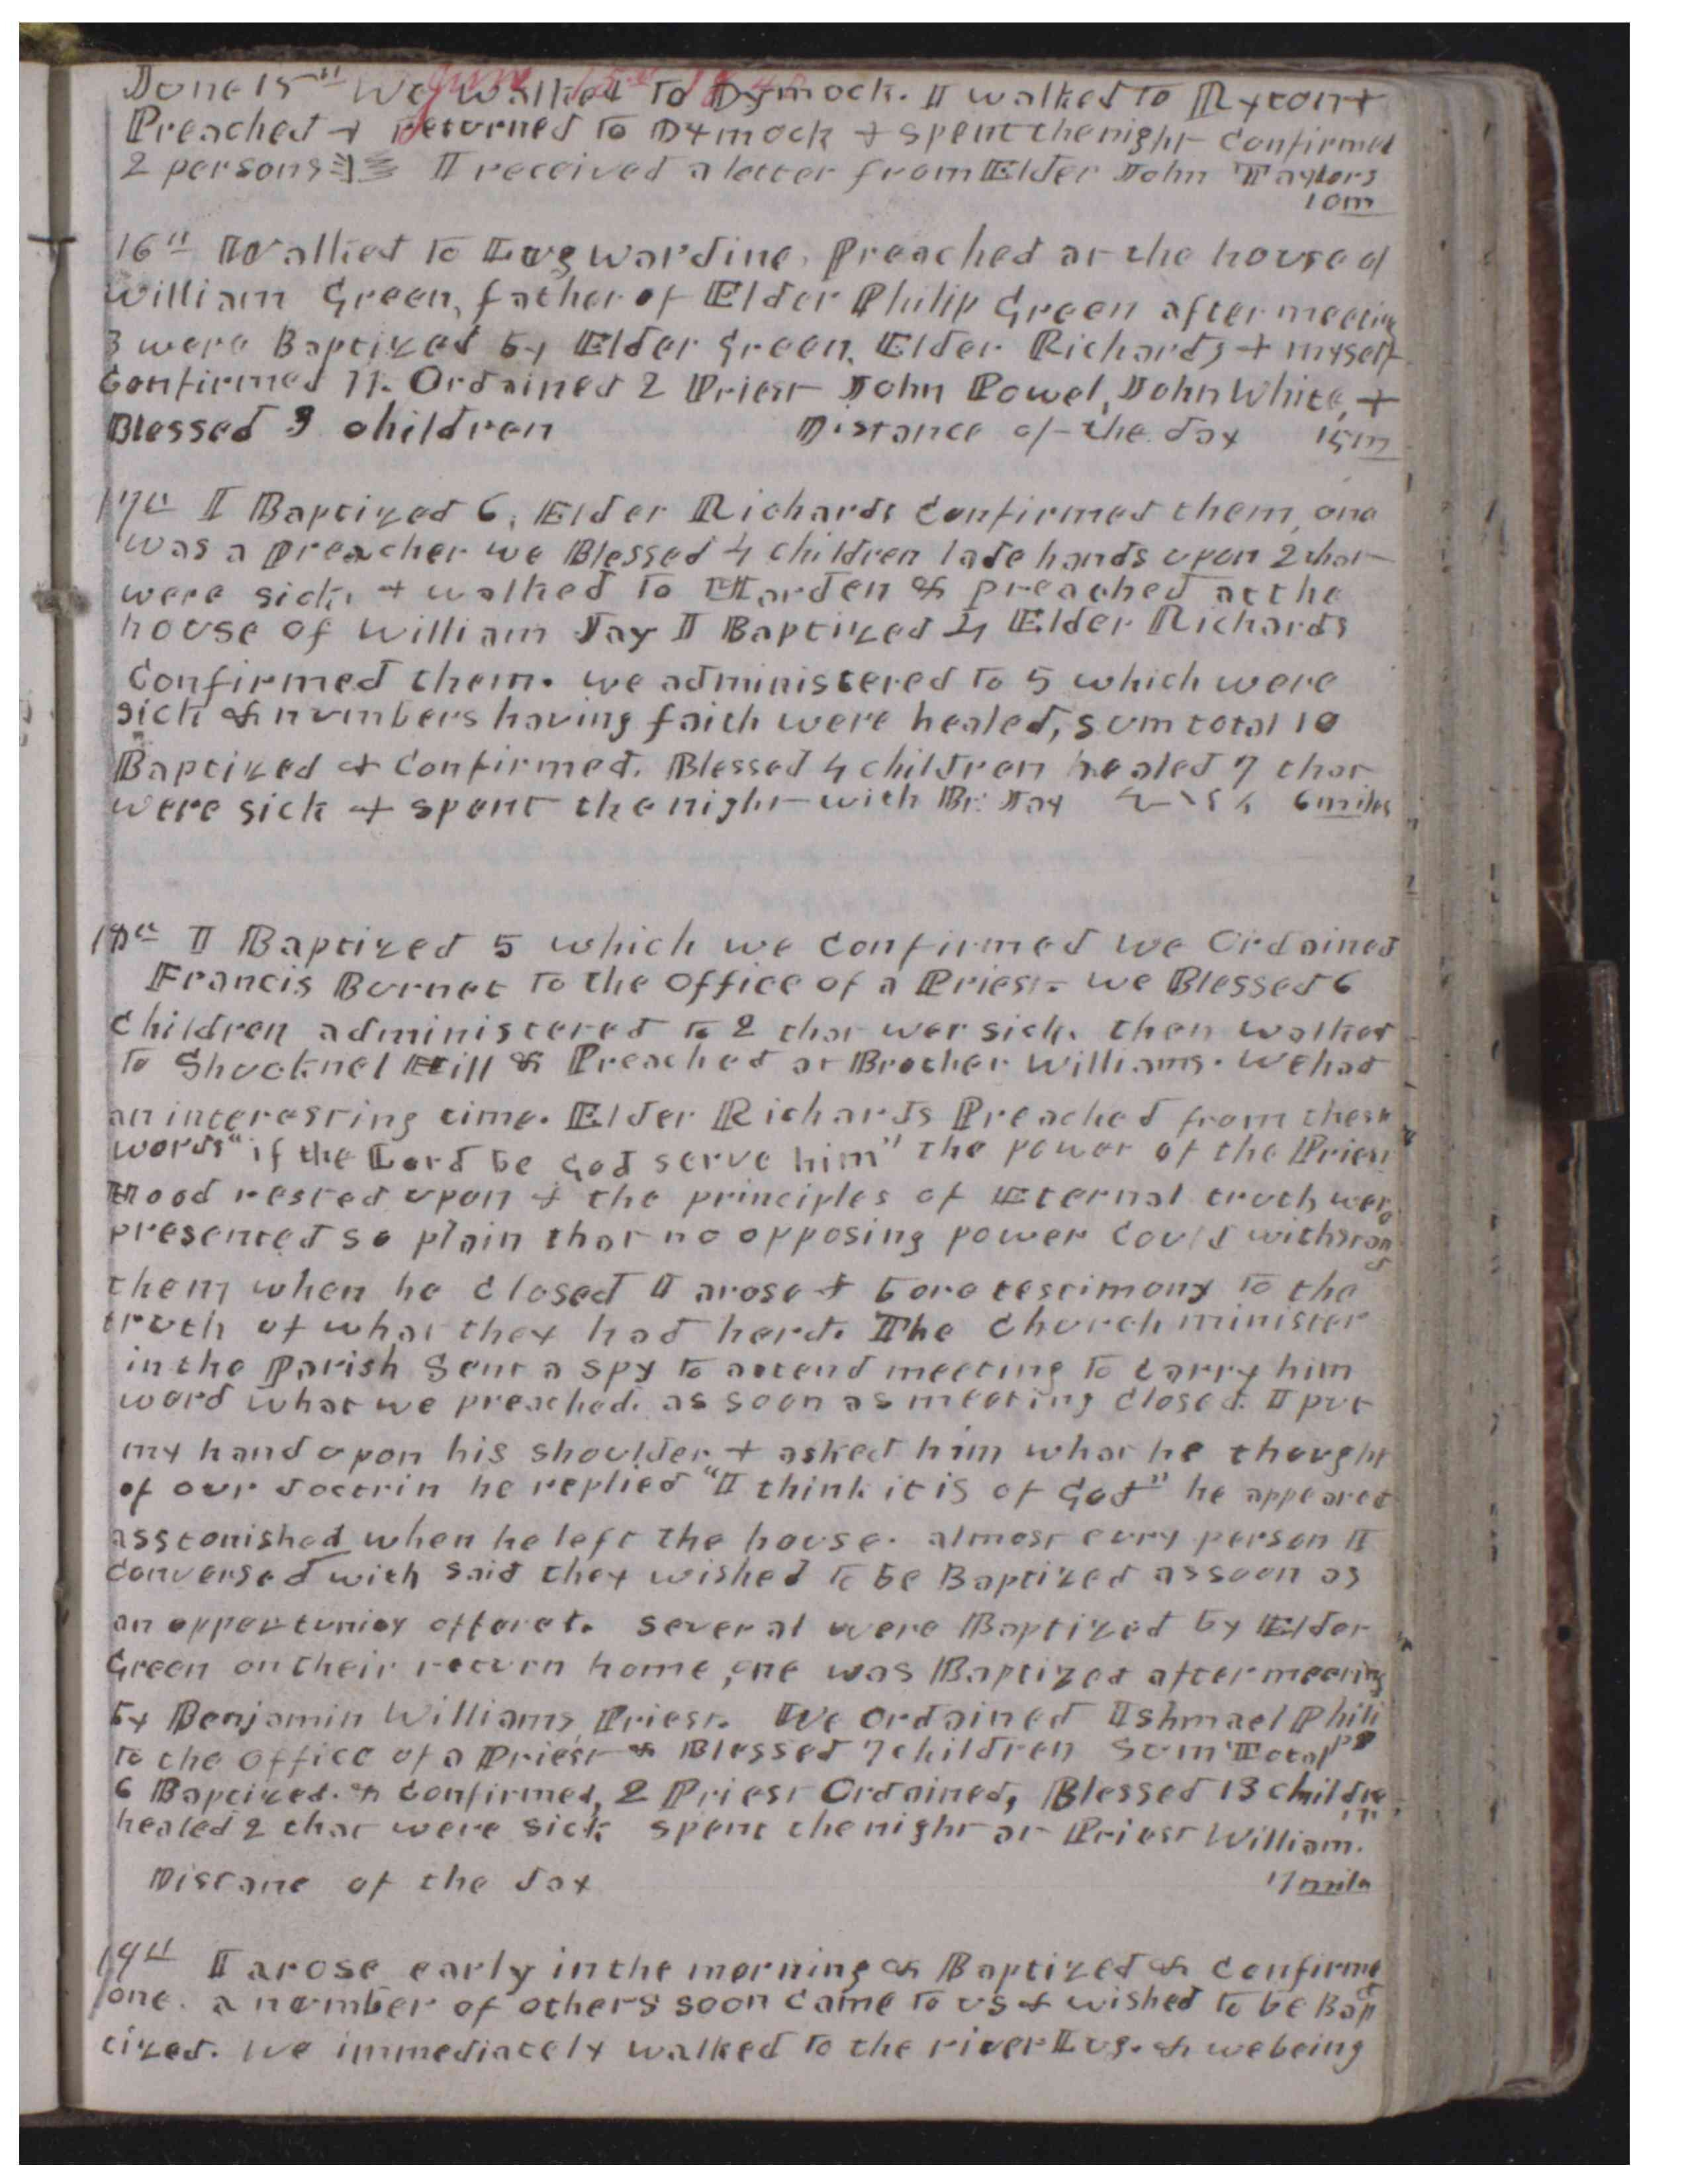 June 15th We walked to Dymock. I walked to Ryton &
Preached & returned to Dymock & spent the night Confirmed
2 persons I received a letter from Elder John Taylors
10m
16th Walked to Lugwardine, Preached at the house of
William Green, father of Elder Philip Green after meeting
3 were Baptized by Elder Green. Elder Richards & myself
Confirmed 11. Ordained 2 Priest John Powel, John White, &
Blessed 3 children Distance of the day 15m
17th I Baptized 6, Elder Richards Confirmed them, one
was a preacher we Blessed 4 children lade hands upon 2 that
were sick, & walked to Marden & preached at the
house of William Jay I Baptized 4 Elder Richards
Confirmed them. we administered to 5 which were
sick & numbers having faith were healed, sum total 10
Baptized & Confirmed. Blessed 4 children healed 7 that
were sick & spent the night with Br. Jay 6 miles
18th I Baptized 5 which we Confirmed we Ordained
Francis Burnet to the Office of a Priest. we Blessed 6
children administered to 2 that wer sick. then walked
to Shucknel Hill & Preached at Brother Williams. We had
an interesting time. Elder Richards Preached from these
words "if the Lord be God serve him" the power of the Priest
Hood rested upon & the principles of Eternal truth were
presented so plain that no opposing power could withstand
them when he closed I arose & bore testimony to the
truth of what they had herd. The Church minister
in the Parish Sent a spy to attend meeting to carry him
word what we preached. as soon as meeting closed I put
my hand upon his shoulder & asked him what he thought
of our doctrin he replied "I think it is of God" he appeared
asstonished when he left the house. almost evry person I
conversed with said they wished to be Baptized as soon as
an oppertunity offered. several were Baptized by Elder
Green on their return home, one was Baptized after meeting
by Benjamin Williams, Priest. We ordained Ishmael Philips
to the office of a Priest & Blessed 7 children Sum Total
6 Baptized. & Confirmed, 2 Priest Ordained, Blessed 13 children
healed 2 that were sick spent the night at Priest William.
Distane of the day mile
19th I arose early in the morning & Baptized & Confirmed
one. a number of others soon came to us & wished to be Bap
tized. We immediately walked to the river Lug. & we being